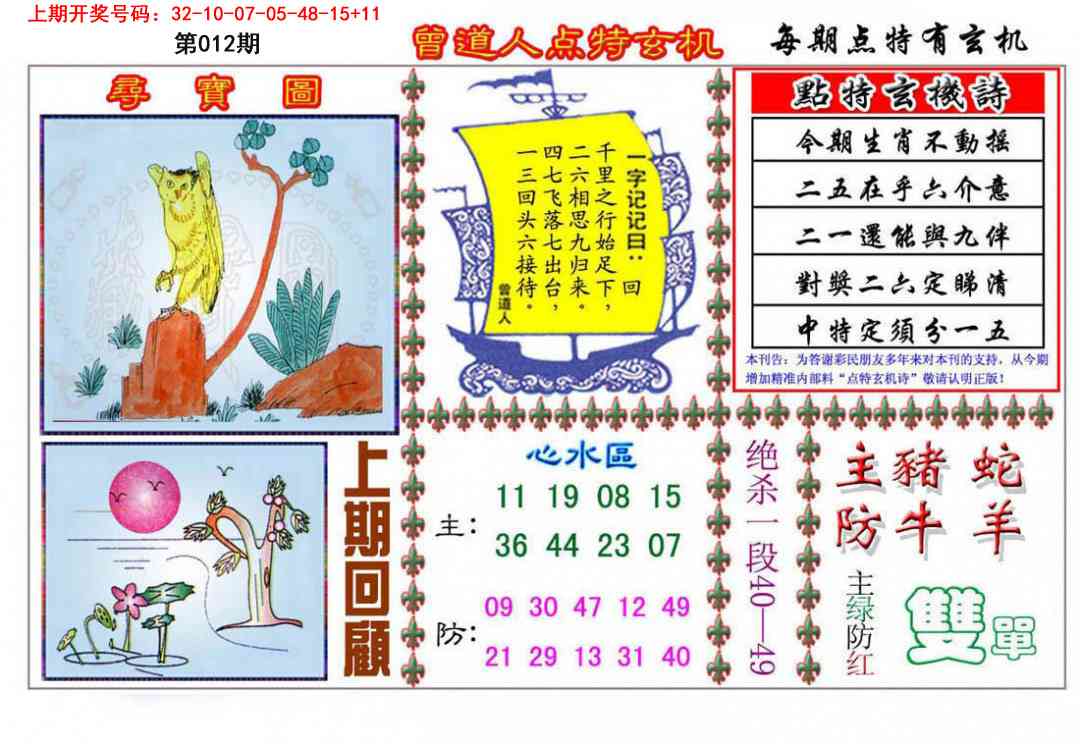 上期开奖号码：32-10-07-05-48-15+11
第012期
曾道人点特玄机
每期点特有玄机
尋寶圖
一字记记曰：回
千里之行始足下，
二六相思九归来。
四七飞落七出台，
一三回头六接待。
曾道人
點特玄機詩
今期生肖不動摇
二五在乎六介意
二一還能與九伴
對獎二六定睇清
中特定須分一五
本刊告：为答谢彩民朋友多年来对本刊的支持，从今期
增加精准内部料“点特玄机诗”敬请认明正版！
上期回顧
心水區
主：
11 19 08 15
36 44 23 07
防：
09 30 47 12 49
21 29 13 31 40
绝杀一段40—49
主豬蛇
防牛羊
主绿防红
雙單